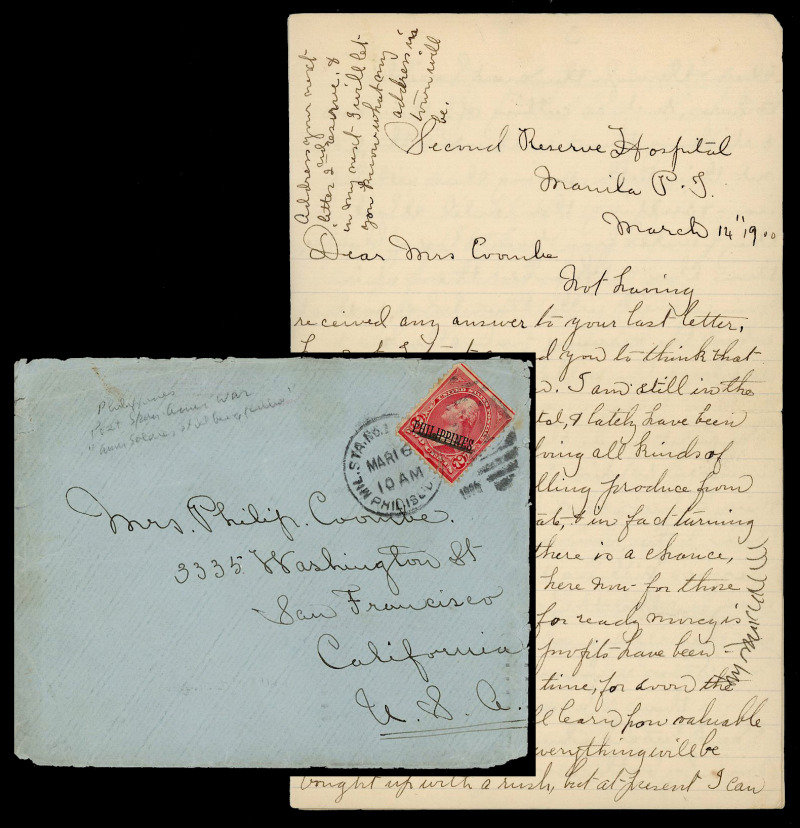 Address your next
letter 2nd reserve, &
in my next I will let
you know what my
address in
town will
be.
Second Reserve Hospital
Manila P. I.
March 14" 1900
Dear Mrs Coombe
Not having
received any answer to your last letter,
d you to think that
I am still in the
tal, & lately have been
all kinds of
lling produce from
& in fact turning
there is a chance,
here now for those
for ready money is
profits have been
time, for soon the
ll learn how valuable
everything will be
bought up with a rush, but at present I can
Philippines
Post Span Amer War
MIL. STA. NO. 1
MAR 16
10 AM
PHIL ISL'D
PHILIPPINES
Mrs. Philip. Coombe.
3335 Washington St
San Francisco
California
U. S. A.